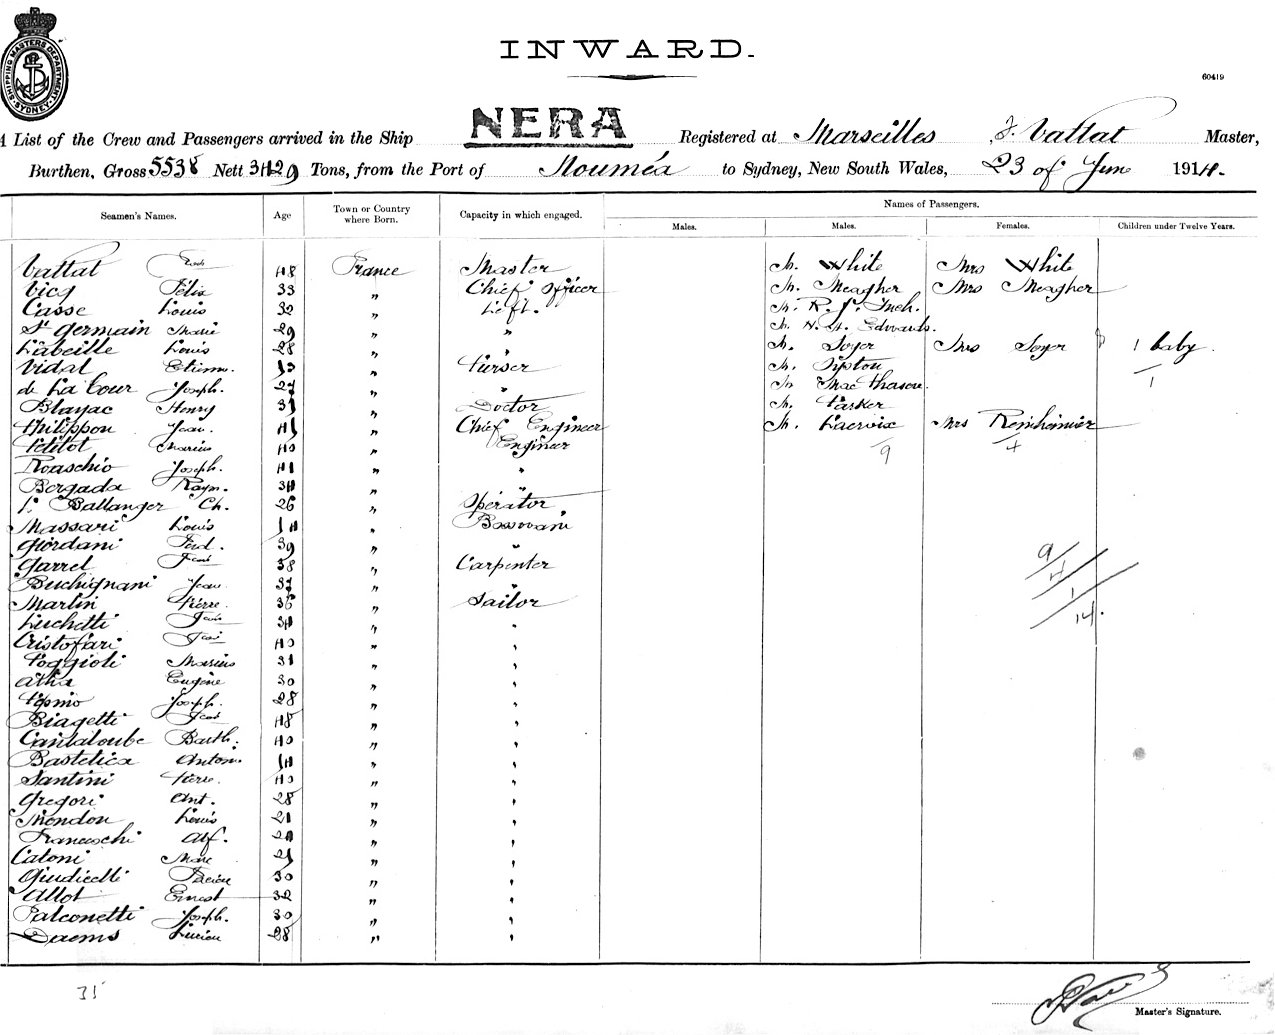 SHIPPING MASTERS DEPARTMENT SYDNEY
INWARD.
60419
A List of the Crew and Passengers arrived in the Ship NERA Registered at Marseilles J. Vattat Master,
Burthen, Gross 5538 Nett 3429 Tons, from the Port of Nouméa to Sydney, New South Wales, 23 of June 1914.
Seamen's Names. Age Town or Country where Born. Capacity in which engaged. Names of Passengers.
Males. Males. Females. Children under Twelve Years.
Vattat 48 France Master M. White Mrs White
Vicq Félix 33 " Chief Officer M. Meagher Mrs Meagher
Casse Louis 32 " Lieft. M. R. J. Inch.
St Germain Marie 29 " " M. H. Edwards.
Labeille Louis 28 " " M. Soyer Mrs Soyer 1 baby.
Vidal Etienn. " Purser M. Tipton 1
de La Cour Joseph. 27 " " M.
Blayac Henry " Doctor M. Parker
Philippon Jean. " Chief Engineer M. Lacroix Mrs Reinheimer
Petitot Marius 40 " Engineer 9 4
Roaschio Joseph. 41 " "
Bergada Raym. 34 "
Ballanger Ch. 26 " Operator
Massari Louis "
Giordani Ferd. 39 " "
Garrel 38 " Carpenter
Buchignani Jean 37 " "
Martin Pierre. 36 " Sailor
Luchetti 34 " "
Cristofari 40 " "
Poggioli Marius 31 " "
Eugène 30 " "
Joseph. 28 " "
Biagetti 48 " "
Cantaloube Barth. 40 " "
Bastelica Antoni. " "
Santini Pierre. 40 " "
Gregori Ant. 28 " "
Mondon Louis 21 " "
Franceschi Alf. " "
Catoni Marc " "
Giudicelli 30 " "
Allot Ernest 32 " "
Falconetti Joseph. 30 " "
Daems Lucien 28 " "
9
4
1
14.
35
Master's Signature.